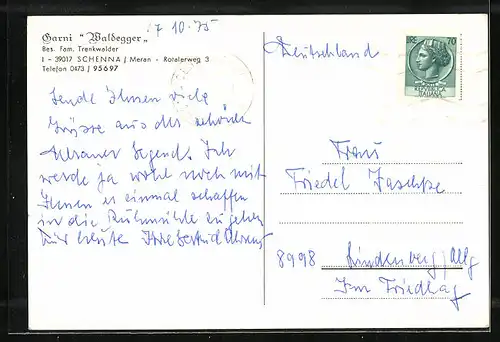 Garni "Waldegger"
7.10.75
Bes. Fam. Trenkwalder
I - 39017 SCHENNA / Meran - Rotalerweg 3
Telefon 0473 / 95697
Deutschland
70
REPUBBLICA
ITALIANA
Sende Ihnen viele
Grüsse aus der schönen
Meraner Gegend. Ich
werde ja wohl noch mit
Ihnen es einmal schaffen
in die Ruhmühle zu gehen
Für heute Ihre Gertrud
Frau
Friedel Jaschke
8998 Lindenberg/Allg
Im Friedhag